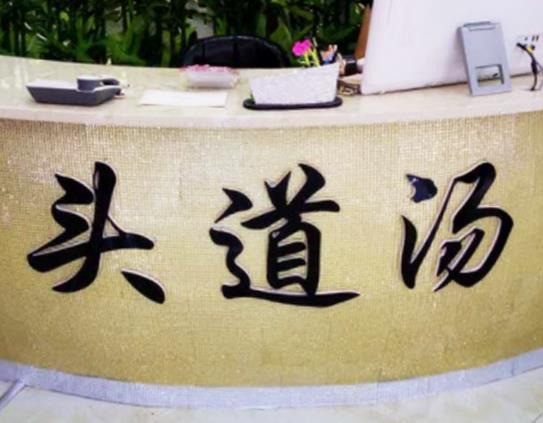 头道汤